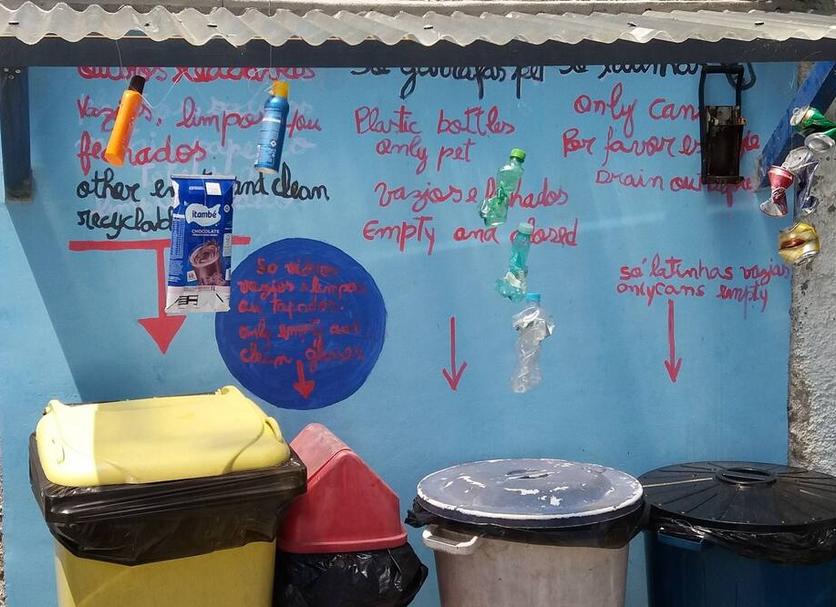 outros reciclaveis
Vazios, limpos ou
fechados.
other empty and clean
itambé
CHOCOLATE
Só vidros
vazios e limpos
ou tapados.
only empty and
clean glasses
só garrafas pet
Plastic bottles
only pet
vazios e fechados
Empty and closed
só latinhas
only cans
Por favor
Drain out
só latinhas vazias
only cans empty